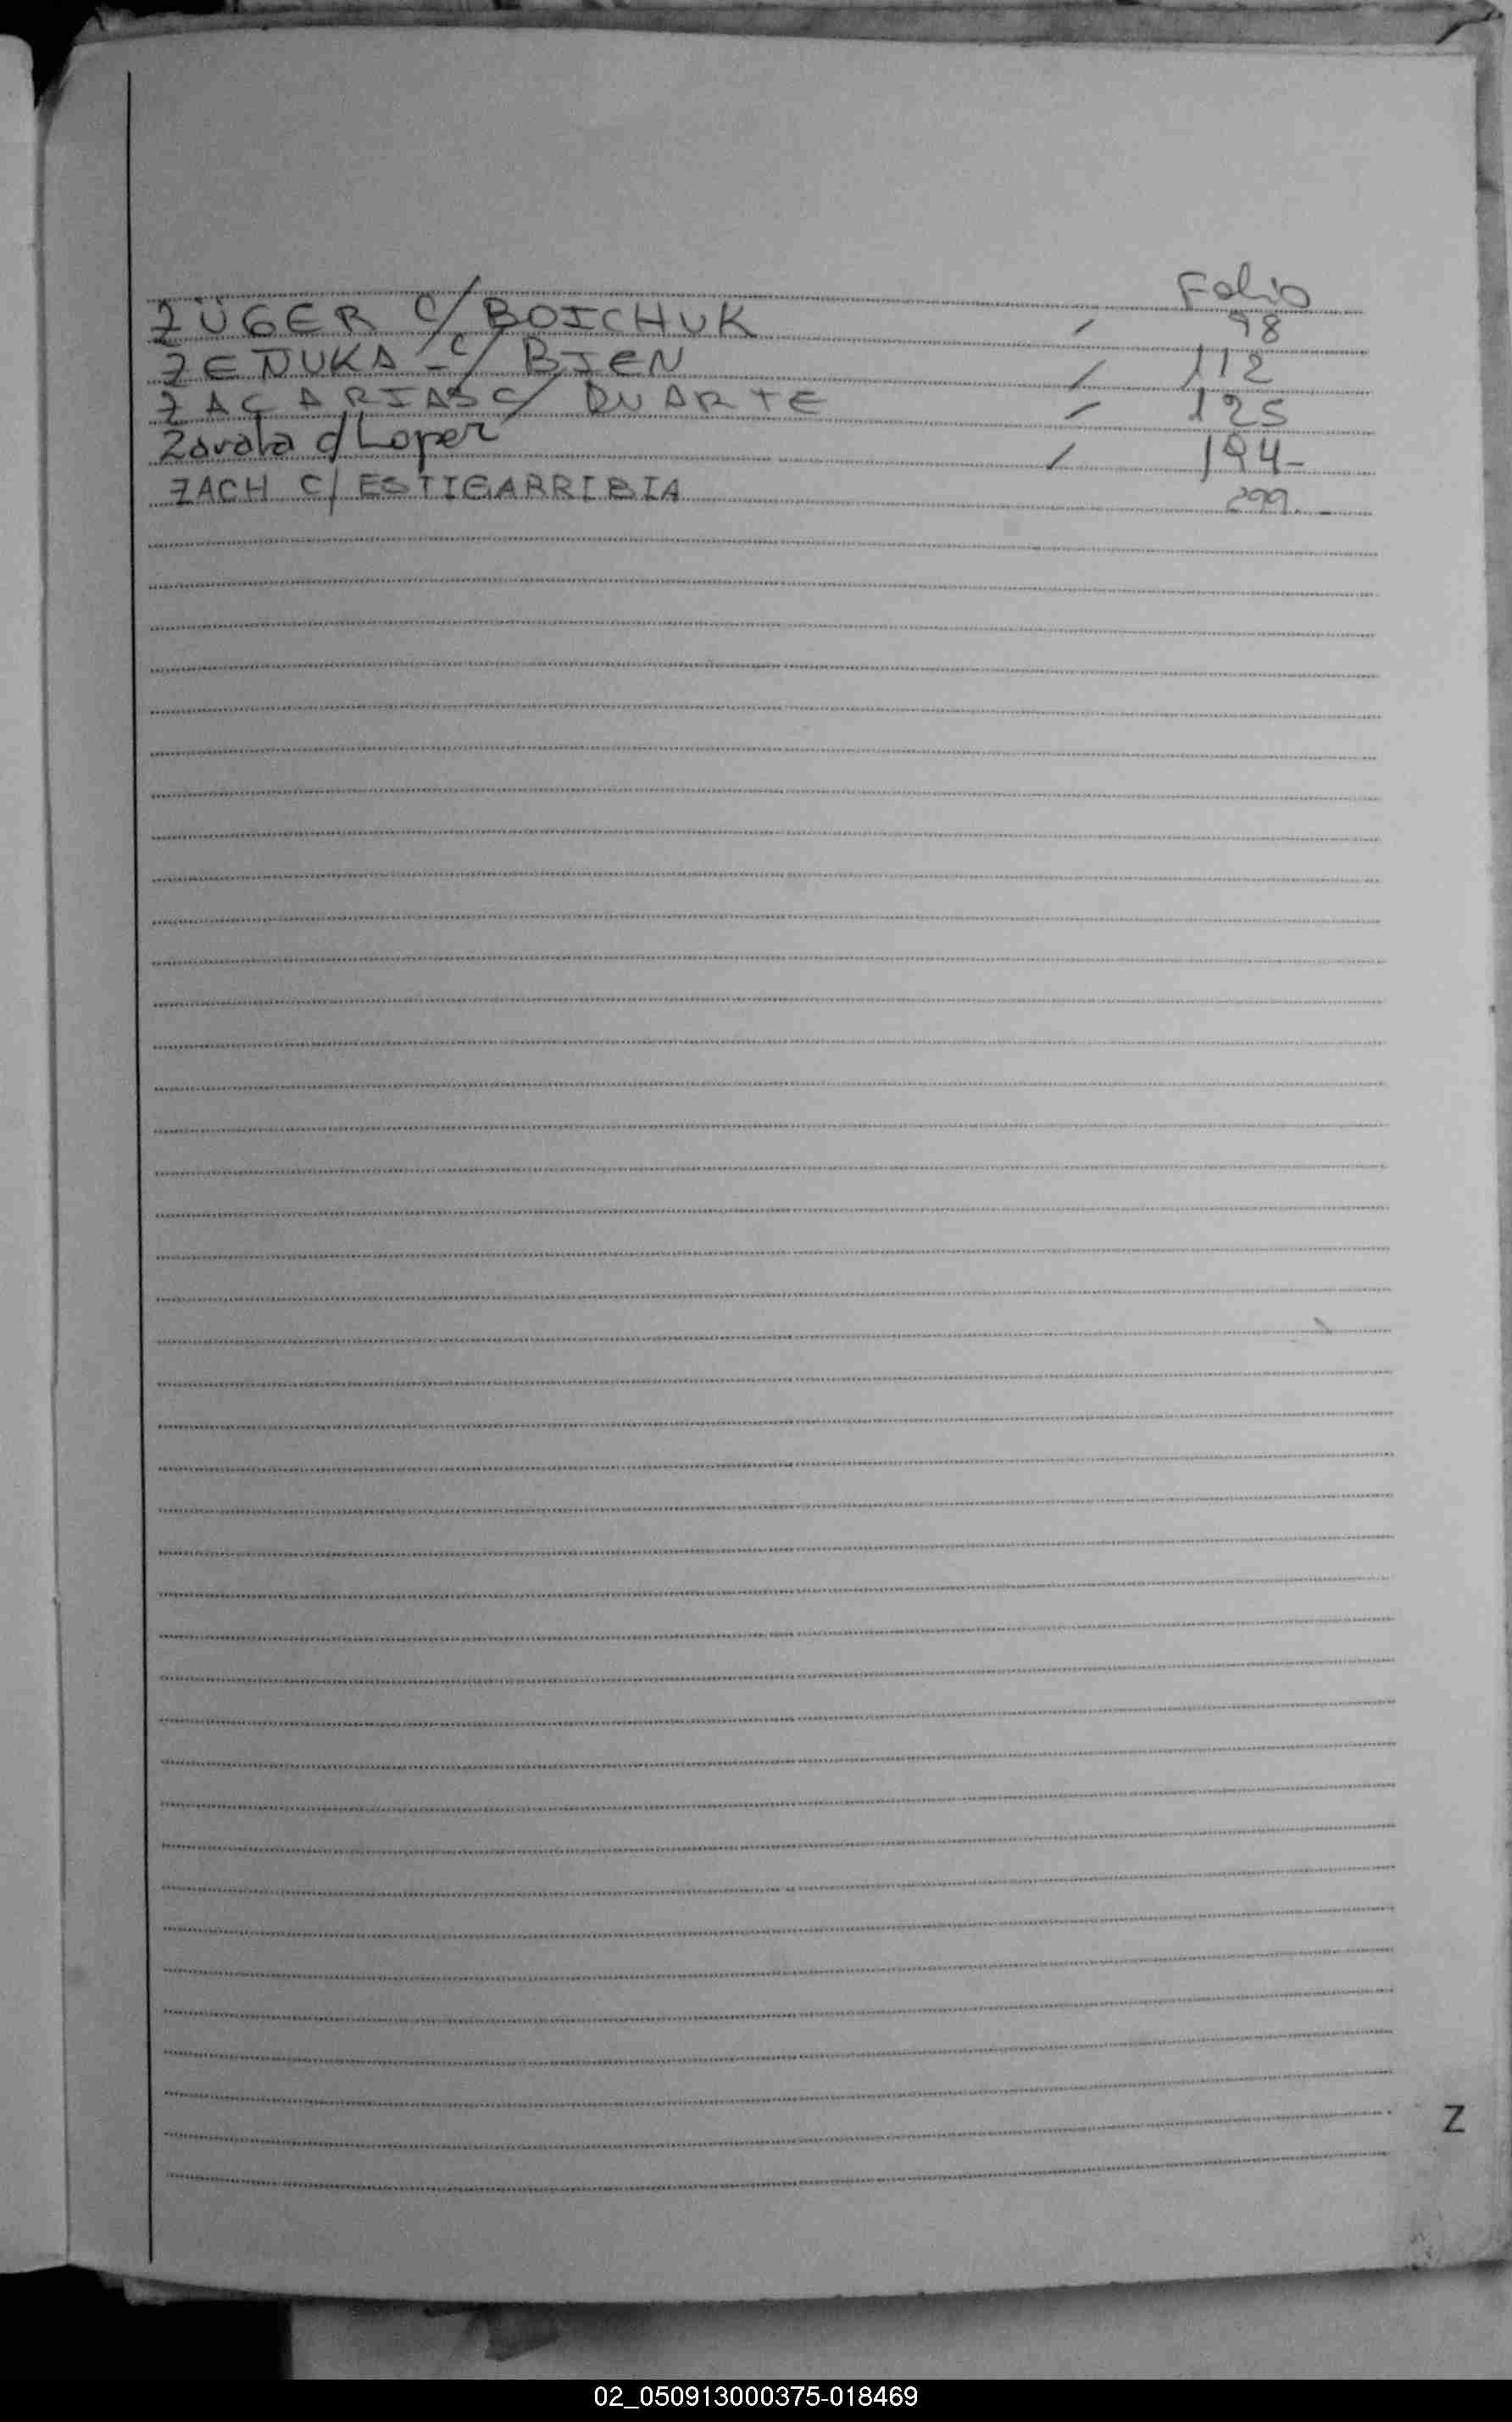 Folio
ZÜGER C/ BOICHUK / 98
ZENUKA - C/ BIEN / 112
ZACARIAS C/ DUARTE / 125
Zavala c/ Loper / 194-
ZACH C/ ESTIGARRIBIA 299.-
Z
02_050913000375-018469